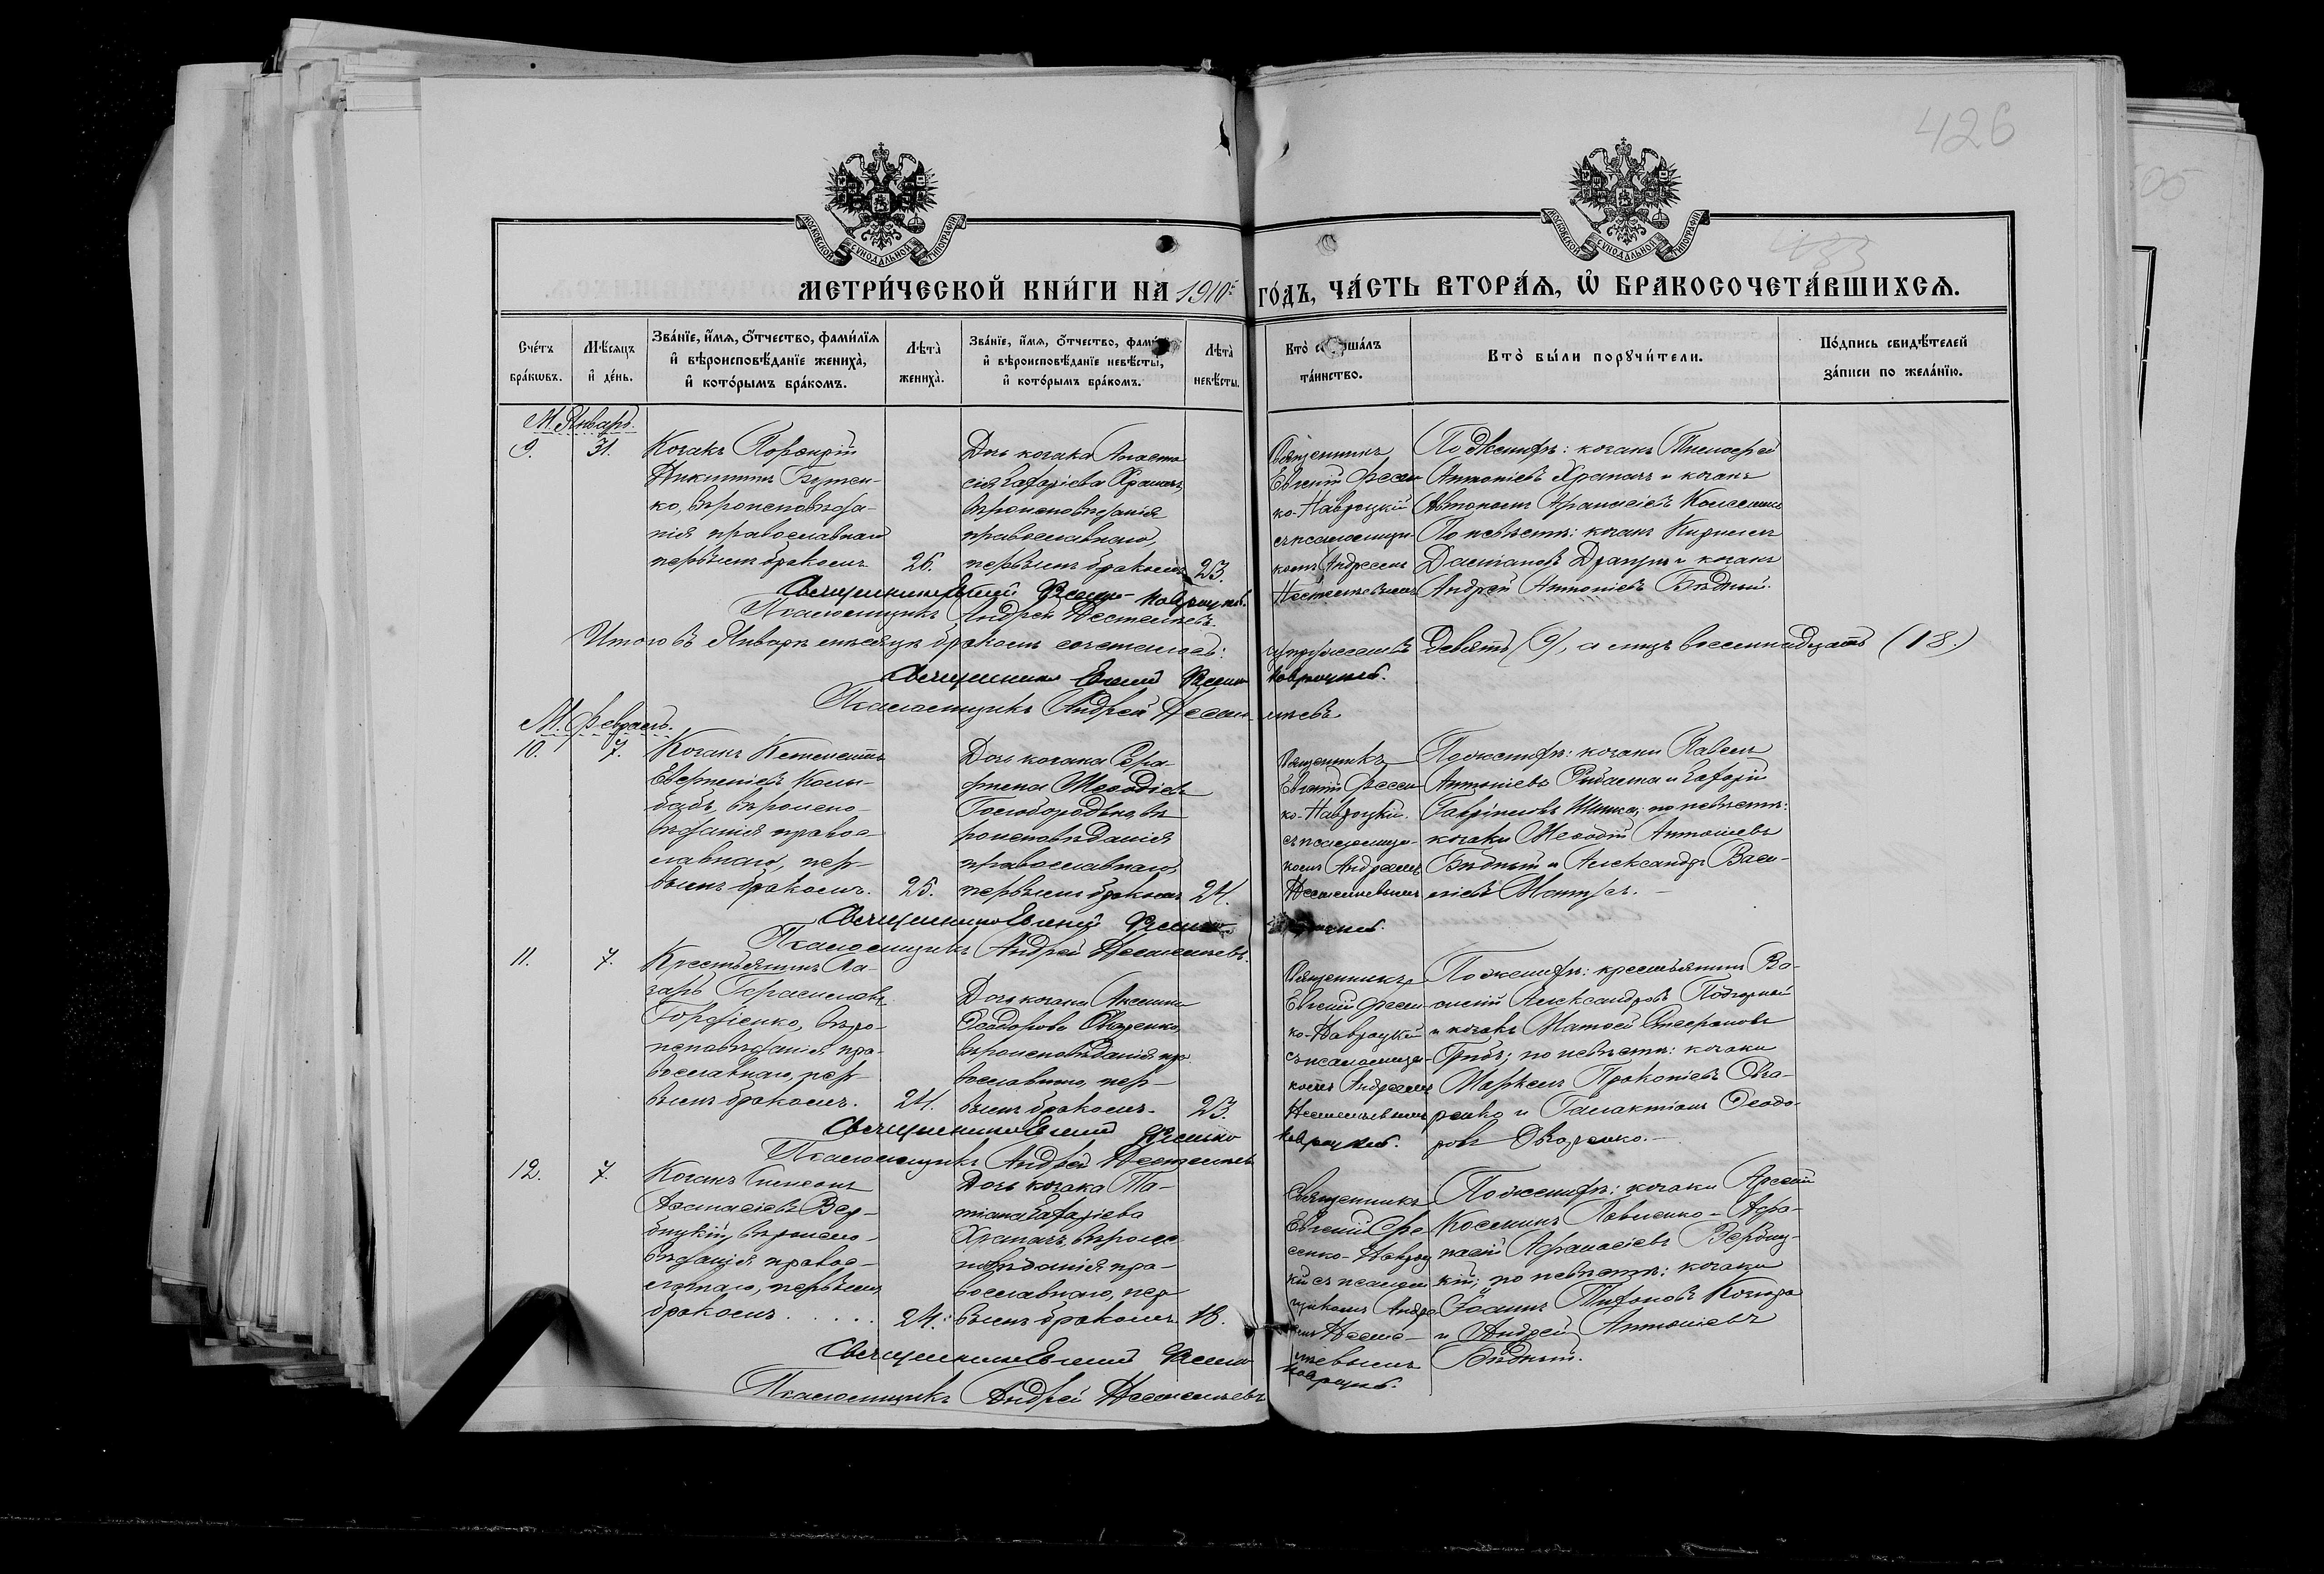 426
МОСКОВСКОЙ СУНОДАЛЬНОЙ ТИПОГРАФІИ
МОСКОВСКОЙ СУНОДАЛЬНОЙ ТИПОГРАФІИ
433
МЕТРИ́ЧЕСКОЙ КНИ́ГИ НА 1910 й ГО́ДЪ, ЧА́СТЬ ВТОРА́Я, Ѡ БРАКОСОЧЕТА́ВШИХСЯ.
Сче́тъ бра́кѡвъ.
Мѣ́сяцъ и де́нь.
Зва́нїе, и́мя, ѻ́тчество, фами́лїя и вѣроисповѣ́данїе жениха̀, и кото́рымъ бра́комъ.
Лѣта̀ жениха̀.
Зва́нїе, и́мя, ѻ́тчество, и вѣроисповѣ́данїе невѣ́сты, и кото́рымъ бра́комъ.
Лѣта̀ невѣ́сты.
Кто̀ та́инство.
Кто̀ бы́ли порꙋчи́тели.
По́дпись свидѣ́телей за́писи по жела́нїю.
М. Январь.
9.
31.
Козакъ Порфирій
Никитинъ Бутен-
ко, вѣроисповѣда-
нія православнаго
первымъ бракомъ
26.
Дочь козака Анаста
сія Захаріева Храпачъ,
вѣроисповѣданія
православнаго,
первымъ бракомъ
23.
Священникъ
Евгеній Фесен
ко-Навроцкій
съ псаломщи-
комъ Андреемъ
По женихѣ: козакъ
Антоніевъ Храпачъ и козакъ
Автономъ Афанасіевъ
По невѣстѣ: козакъ Кириллъ
и козакъ
Андрей Антоніевъ Бѣдный.
Священникъ Евгеній Фесенко-Навроцкій.
Псаломщикъ Андрей
Итого въ Январѣ мѣсяцѣ бракомъ сочеталось: супружествъ девять (9), а лицъ восемнадцать (18.)
Священникъ Евгеній Фесенко Навроцкій.
Псаломщикъ Андрей
М. Февраль.
10.
7.
Козакъ
Евгеніевъ
вѣроиспо-
вѣданія правос-
лавнаго, пер-
вымъ бракомъ.
25.
Дочь козака Сера-
фима Меѳодіева
Голобородько, вѣ
роисповѣданія
православнаго,
первымъ бракомъ
24.
Священникъ
Евгеній Фесен
ко-Навроцкій.
съ псаломщи-
комъ Андреемъ
По женихѣ: козаки Павелъ
Антоніевъ и Захарій
Гавріиловъ по невѣстѣ:
козаки Меѳодій Антоніевъ
Бѣдный и Александръ Васи-
ліевъ
Священникъ Евгеній Фесенко
Псаломщикъ Андрей
11.
7.
Крестьянинъ Ла-
зарь Герасимовъ
Гордіенко, вѣро-
исповѣданія пра-
вославнаго, пер-
вымъ бракомъ.
24.
Дочь козака
Ѳеодорова Овчаренко,
вѣроисповѣданія пра
вославнаго, пер-
вымъ бракомъ.
23.
Священникъ
Евгеній Фесен-
ко-Навроцкій
съ псаломщи-
комъ Андреемъ
По женихѣ: крестьянинъ Ва-
силій Александровъ Подгорный
и козакъ Матѳей Стефановъ
по невѣстѣ: козаки
Маркелъ Прокопіевъ Овча-
ренко и Галактіонъ Ѳеодо-
ровъ Овчаренко.
Священникъ Евгеній Фесенко Навроцкій.
Псаломщикъ Андрей
12.
7.
Козакъ Симеонъ
Аѳанасіевъ Вер-
бицкій, вѣроиспо-
вѣданія правос-
лавнаго, первымъ
бракомъ . . . . .
24.
Дочь козака Та-
тіана Захаріева
Храпачъ, вѣроис
повѣданія пра-
вославнаго, пер
вымъ бракомъ
18.
Священникъ
Евгеній Фе-
сенко-Навроц
кій съ псалом
щикомъ Андре
По женихѣ: козаки Арсеній
Косминъ Павленко и Аѳа-
насій Аѳанасіевъ Вербиц-
кій; по невѣстѣ: козаки
Іоаннъ
и Андрей Антоніевъ
Бѣдный.
Священникъ Евгеній Фесенко Навроцкій.
Псаломщикъ Андрей